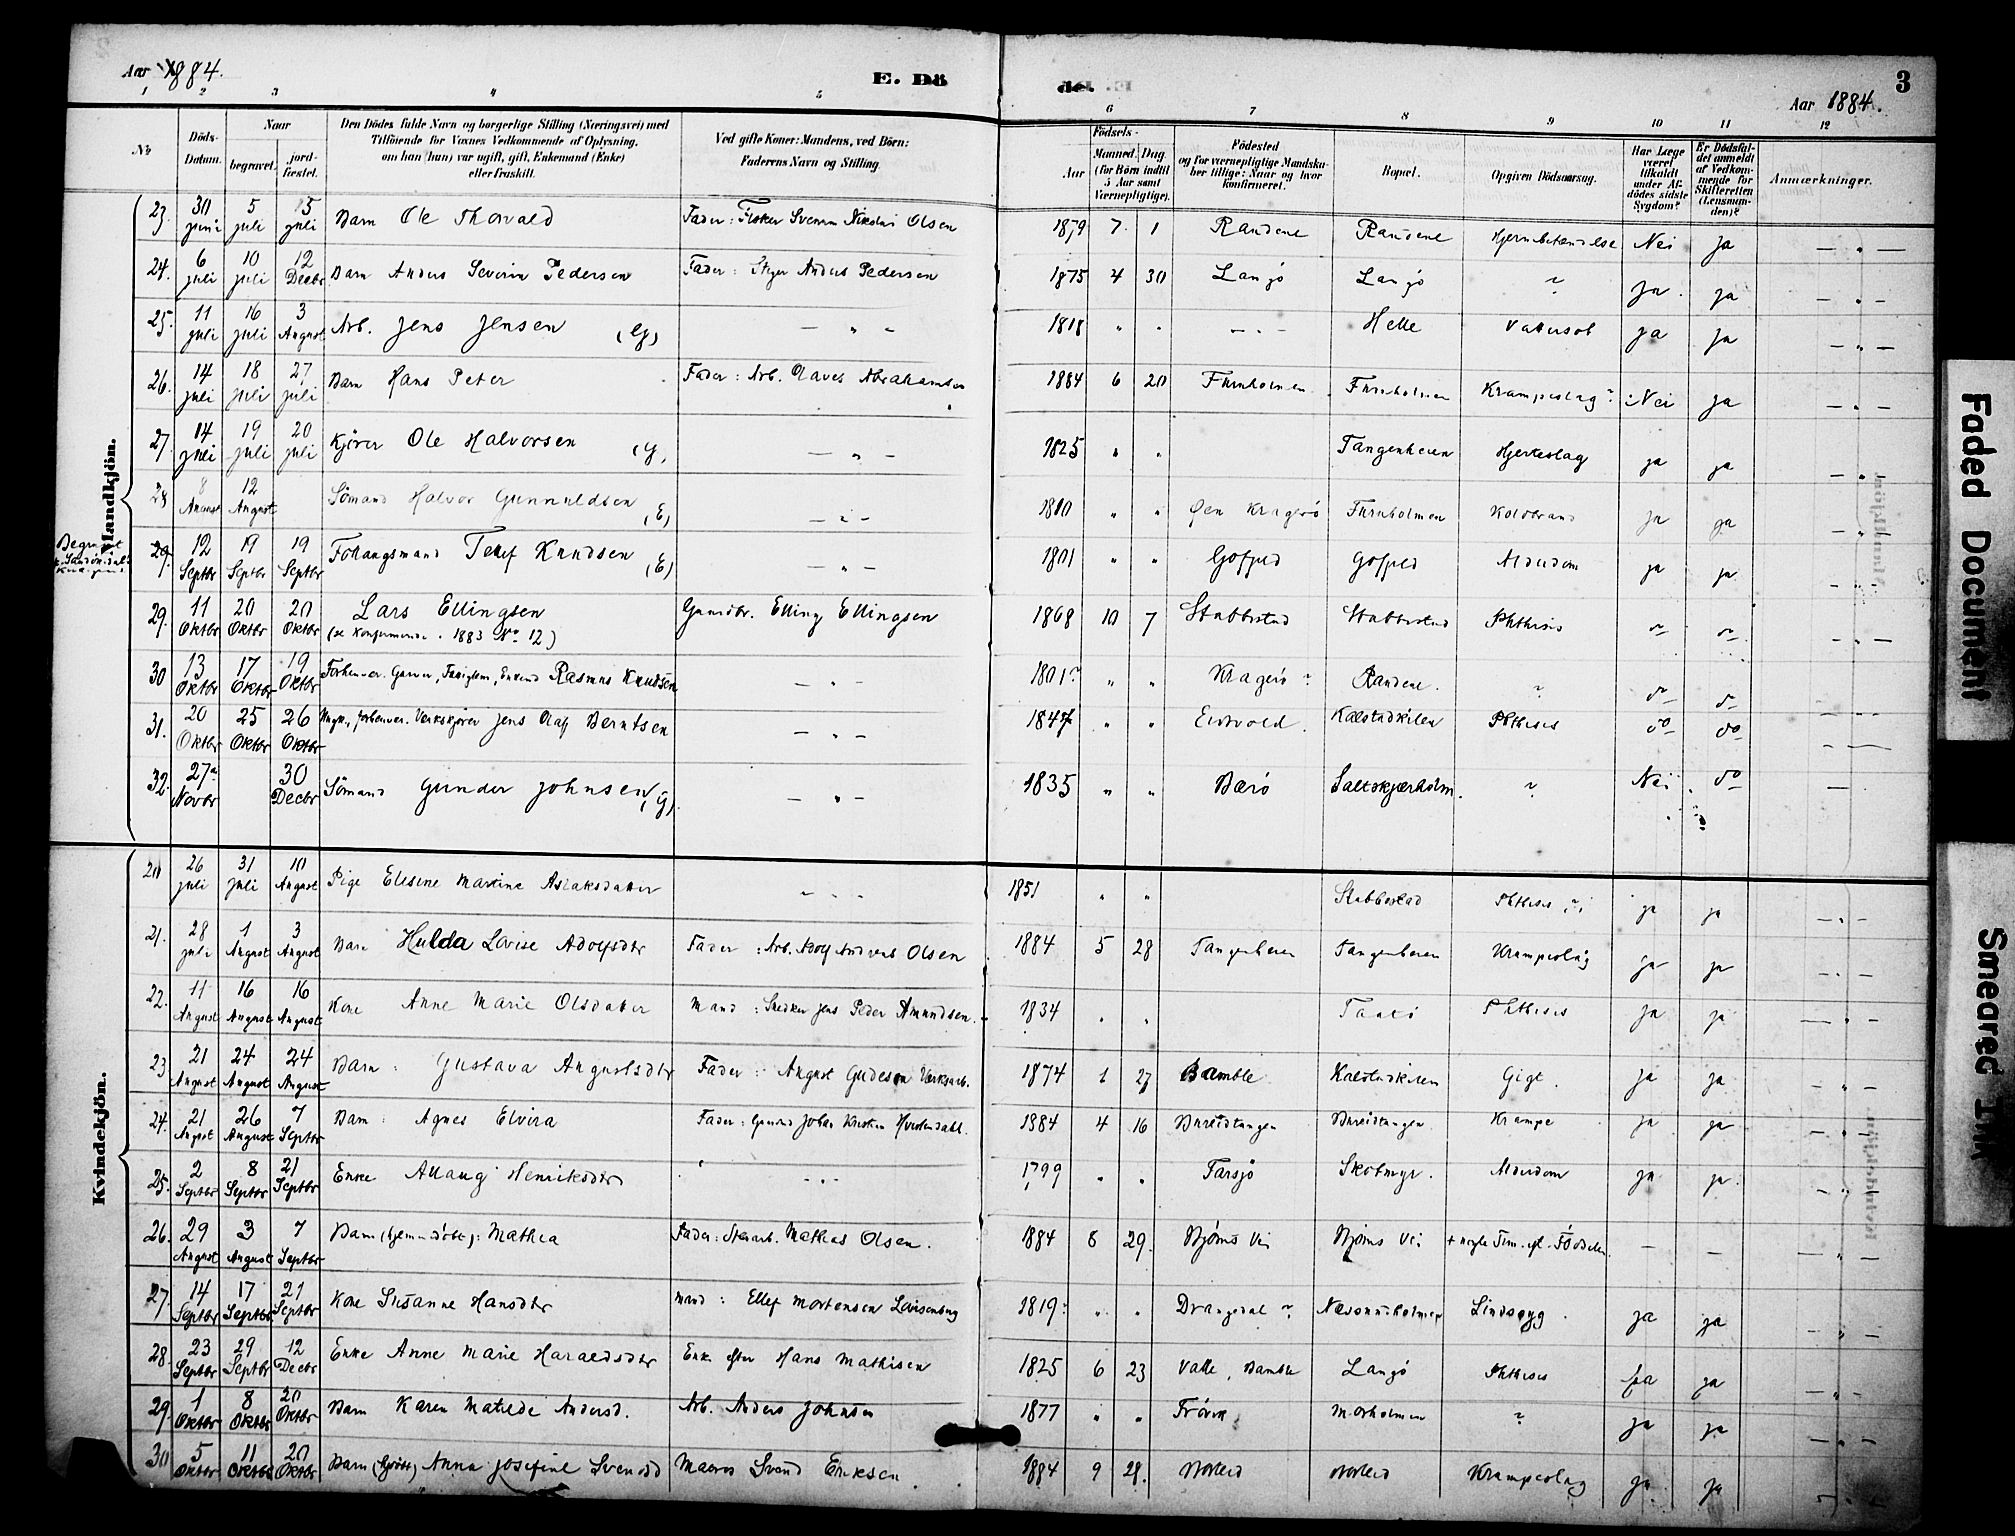 Aar 1884.
E. Dö
de.
3
Aar 1884.
1 2 3 4 5 6 7 8 9 10 11 12
No
Döds-Datum.
Naar
begravet.
jord-fæstet.
Den Dödes fulde Navn og borgerlige Stilling (Næringsvei) med
Tilföiende for Voxnes Vedkommende af Oplysning,
om han (hun) var ugift, gift, Enkemand (Enke)
eller fraskilt.
Ved gifte Koner: Mandens, ved Börn:
Faderens Navn og Stilling.
Födsels-
Aar
Maaned. Dag
(for Börn indtil
5 Aar samt
Værnepligtige).
Födested
og for værnepligtige Mandska-
ber tillige: Naar og hvor
konfirmeret.
Bopæl.
Opgiven Dödsaarsag.
Har Læge
været
tilkaldt
under Af-
dödes sidste
Sygdom?
Er Dödsfal-
det anmeldt
af Vedkom-
mende for
Skifteretten
(Lensman-
den)?
Anmærkninger.
Mandkjön.
23. 30 juni 5 juli 5 juli Barn Ole Thorvald Fader: Fisker Svenum Nikolai Olsen 1879 7 1 Randene Randene Hjernebetændelse Nei Ja — „ —
24. 6 juli 10 juli 12 Decbr Barn Anders Severin Pedersen Fader: Anders Pedersen 1875 4 30 Langö Langö ? Ja Ja — „ —
25. 11 juli 16 juli 3 August Arb. Jens Jensen (G) — „ — 1818 „ „ — „ — Helle Vattersot Ja Ja — „ —
26. 14 juli 18 juli 27 juli Barn Hans Peter Fader: Arb. Abrahamsen 1884 6 20 Furuholmen Furuholmen Krampeslag? Nei Ja — „ —
27. 14 juli 19 juli 20 juli Kjörer Ole Halvorsen (G) — „ — 1825 „ „ Tangenheien Hjerteslag Ja Ja — „ —
28 8 August 12 August Sömand Halvor Gunnuldsen (E) — „ — 1810 „ „ Öen Kragerö Furuholmen Koldbrand Ja Ja — „ —
Begravet
29. 12 Septbr 19 Septbr 19 Septbr Knudsen (E) — „ — 1801 „ „ Alderdom Ja Ja — „ —
29. 11 Oktbr 20 Oktbr 20 Oktbr Lars Ellingsen Elling Ellingsen 1868 10 7 Stabbestad Stabbestad Phthisis do do — „ —
(se Konfirmerede. 1883 No 12)
30 13 Oktbr 17 Oktbr 19 Oktbr Rasmus Knudsen — „ — 1801? „ „ Kragerö? Randene. ? do do
31. 20 Oktbr 25 Oktbr 26 Oktbr forhenver. Verkskjörer Jens Olaf Berntsen — „ — 1847 „ „ Eidsvold. Kalstadkilen Phthisis do do
32. 27? Novbr 30 Decbr Sömand Gunder Johnsen (G). — „ — 1835 „ „ Bærö Saltskjærholm. ? Nei do —
Kvindekjön.
20 26 juli 31 juli 10 August Pige Elesine Martine Aslaksdatter „ „ „ 1851 „ „ Stabbestad Phthisis Ja Ja — „ —
21. 28 juli 1 August 3 August Barn Hulda Lovise Adolfsdtr Fader: Arb. Adolf Andreas Olsen 1884 5 28 Tangenheien Tangenheien Krampeslag Ja Ja — „ —
22. 11 August 16 August 16 August Kone Anne Marie Olsdatter Mand: Snedker Jens Peder Amundsen. 1834 „ „ Taatö Phthisis Ja Ja — „ —
23 21 August 24 August 24 August Barn: Gustava Augustsdtr Fader: August Gudesen Verksarb. 1874 1 27 Bamble Kalstadkilen Gigt. Ja Ja — „ —
24. 21 August 26 August 7 Septbr Barn: Agnes Elvira Fader: Johan Kristen 1884 4 16 Bureidtangen Bureidtangen Krampe Ja Ja — „ —
25. 2 Septbr 8 Septbr 21 Septbr Enke Allaug Henriksdtr „ „ „ 1799 „ „ Farsjö Skotmyr. Alderdom Ja Ja — „ —
26. 29 August 3 August 7 Septbr Barn (hjemmedöbt): Mathea Fader: Mathias Olsen. 1884 8 29. Björns Vei Björns Vei + nogle Tim. eft. Födselen. — — „ —
27 14 Septbr 17 Septbr 21 Septbr Kone Susanne Hansdtr Mand: Ellef Mortensen Lovisenberg 1819? „ „ Drangedal? Lindsyg. Ja Ja „ —
28. 23 Septbr 29 Septbr 12 Decbr Enke Anne Marie Haraldsdtr Enke efter Hans Mathisen 1825 6 23 Valle, Bamble Langö Phthisis Ja Ja — „ —
29. 1 Oktbr 8 Oktbr 20 Oktbr Barn Karen Matilde Andersd. Arb. Anders Johnsen 1877 „ „ Frövik Morholmen ? Ja Ja — „ —
30 5 Oktbr 11 Oktbr 20 Oktbr Barn Anna Josefine Svendsd Svend Eriksen 1884 9 28. Krampeslag Ja Ja
Faded Document
Smeared Ink